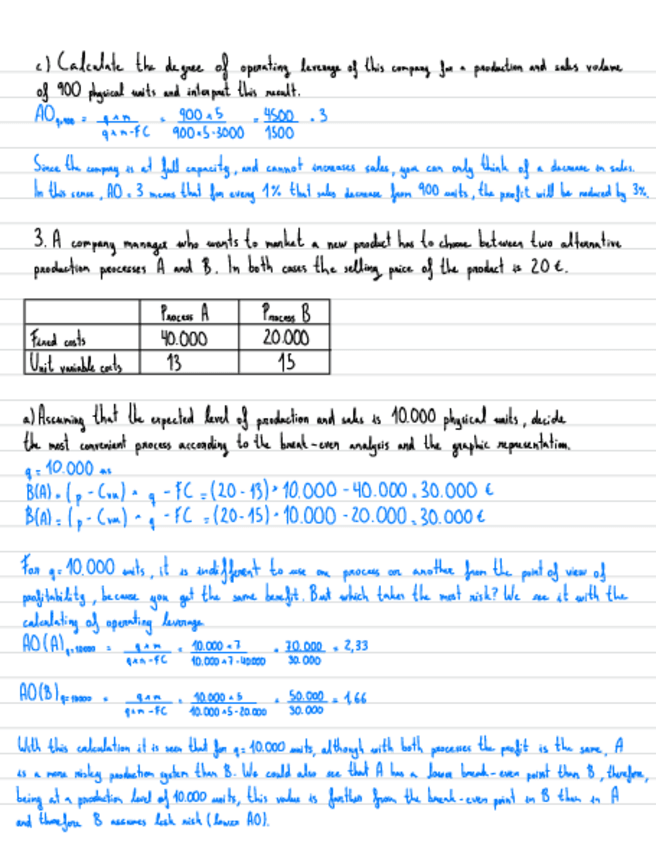 c) Calculate the degree of operating leverage of this company for a production and sales volume
of 900 physical units and interpret this result.
AO q=900 = q·m / q·m-FC = 900·5 / 900·5-3000 = 4500 / 1500 = 3
Since the company is at full capacity, and cannot increases sales, you can only think of a decrease in sales.
In this sense, AO = 3 means that for every 1% that sales decrease from 900 units, the profit will be reduced by 3%.
3. A company manager who wants to market a new product has to choose between two alternative
production processes A and B. In both cases the selling price of the product is 20 €.
Process A Process B
Fixed costs 40.000 20.000
Unit variable costs 13 15
a) Assuming that the expected level of production and sales is 10.000 physical units, decide
the most convenient process according to the break-even analysis and the graphic representation.
q = 10.000 us
B(A) = (p - Cvu) · q - FC = (20 - 13) · 10.000 - 40.000 = 30.000 €
B(A) = (p - Cvu) · q - FC = (20 - 15) · 10.000 - 20.000 = 30.000 €
For q = 10.000 units, it is indifferent to use one process or another from the point of view of
profitability, because you get the same benefit. But which takes the most risk? We see it with the
calculating of operating leverage
AO(A) q=10000 = q·m / q·m-FC = 10.000·7 / 10.000·7-40000 = 70.000 / 30.000 = 2,33
AO(B) q=10000 = q·m / q·m-FC = 10.000·5 / 10.000·5-20.000 = 50.000 / 30.000 = 1,66
With this calculation it is seen that for q = 10.000 units, although with both processes the profit is the same, A
is a more risky production system than B. We could also see that A has a lower break-even point than B, therefore,
being at a production level of 10.000 units, this value is further from the break-even point in B than in A
and therefore B assumes less risk (lower AO).